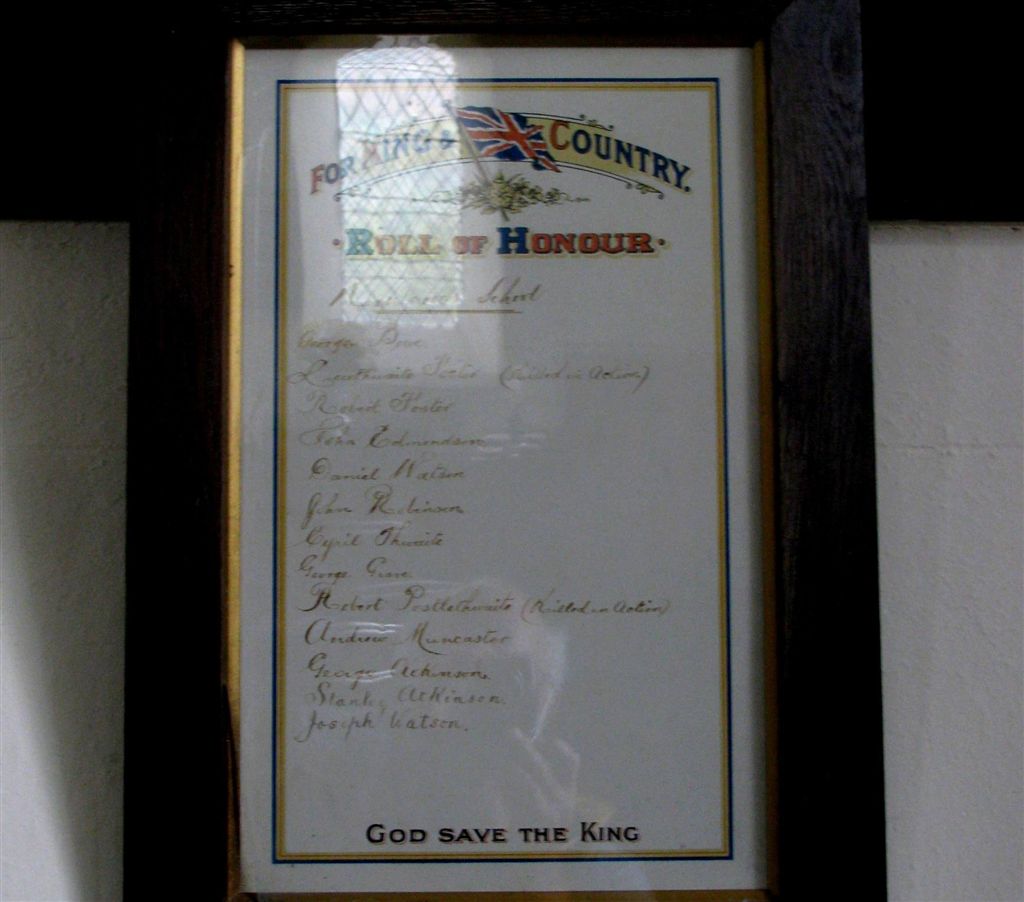 FOR KING & COUNTRY.
· ROLL OF HONOUR ·
School
George
(Killed in Action)
Robert Foster
John Edmondson
Daniel Watson
John Robinson
Cyril Thwaite
George
Robert Postlethwaite (Killed in Action)
Andrew Muncaster
George Atkinson.
Stanley Atkinson.
Joseph Watson.
GOD SAVE THE KING